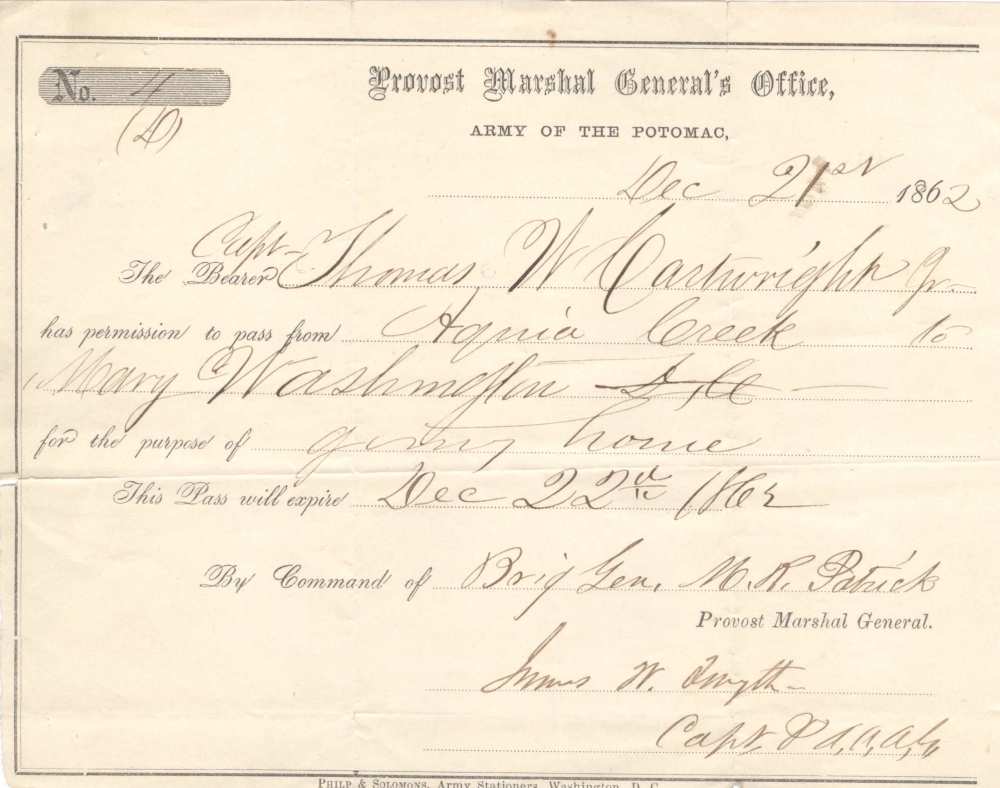 No. 4
(D)
Provost Marshal General's Office,
ARMY OF THE POTOMAC,
Dec 21st 1862
Capt
The Bearer Thomas W Cartwright Jr
has permission to pass from Aquia Creek to
Washington
for the purpose of going home
This Pass will expire Dec 22d 1862
By Command of Brig Gen. M. R. Patrick
Provost Marshal General.
James W. Forsyth
Capt
PHILP & SOLOMONS, Army Stationers, Washington, D. C.